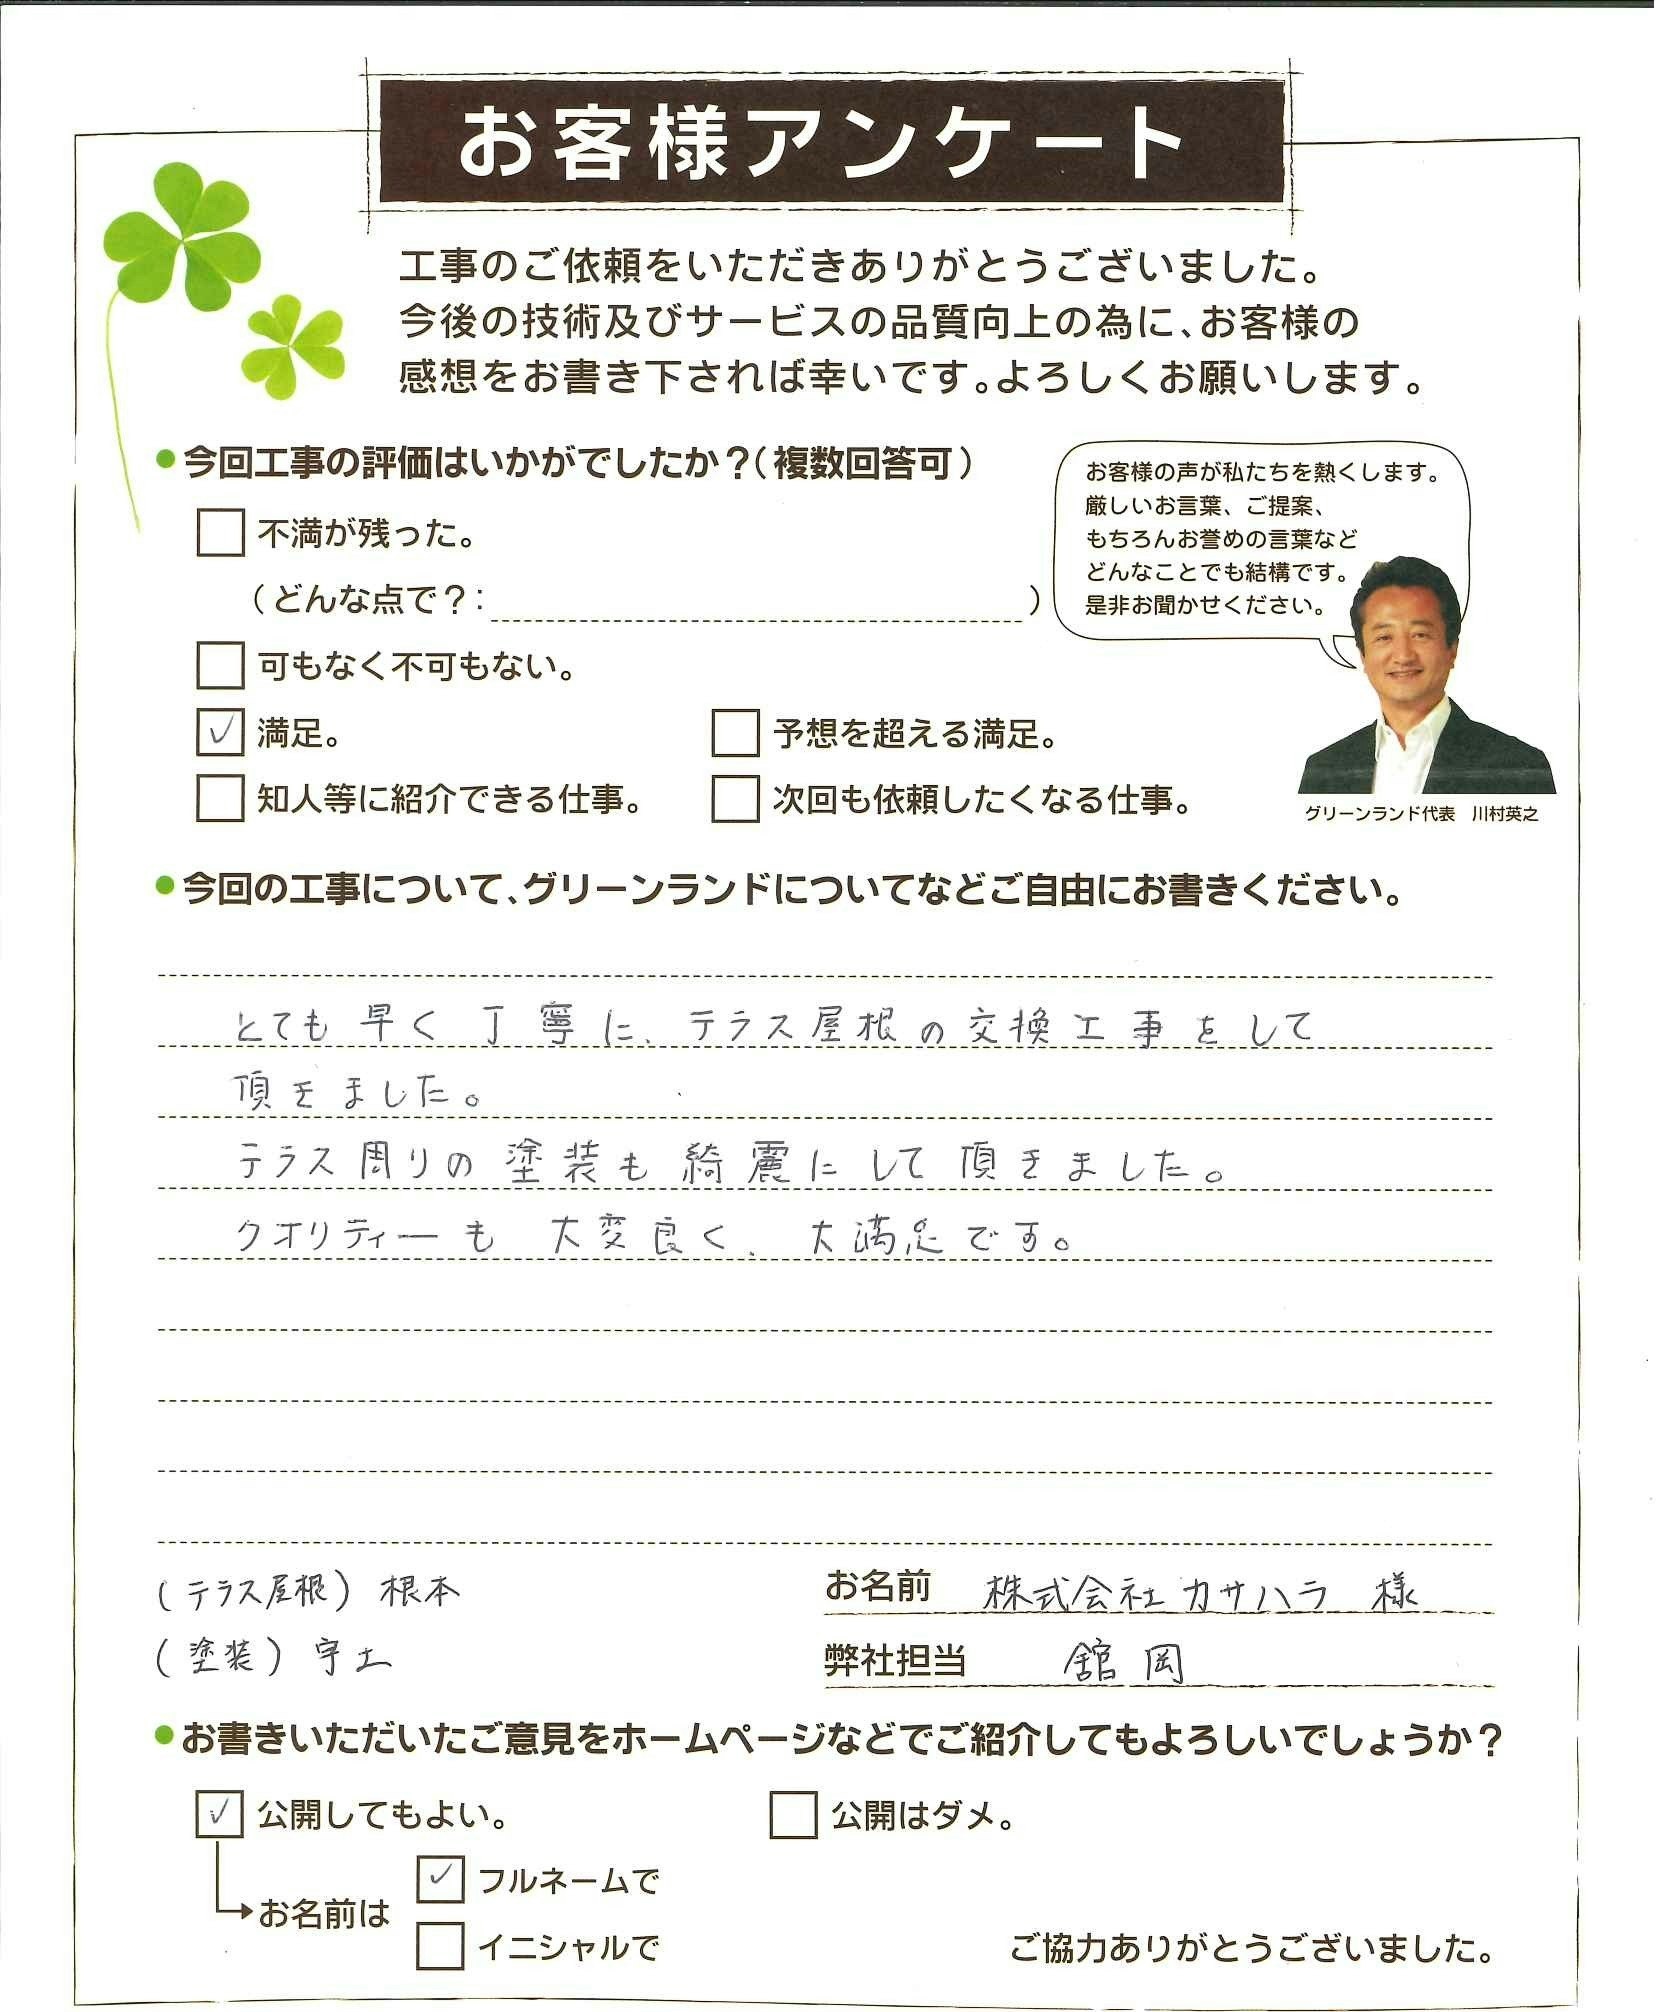 お客様アンケート
工事のご依頼をいただきありがとうございました。
今後の技術及びサービスの品質向上の為に、お客様の
感想をお書き下されば幸いです。よろしくお願いします。
●今回工事の評価はいかがでしたか？（複数回答可）
不満が残った。
（どんな点で？：　）
可もなく不可もない。
✓ 満足。
予想を超える満足。
知人等に紹介できる仕事。
次回も依頼したくなる仕事。
お客様の声が私たちを熱くします。
厳しいお言葉、ご提案、
もちろんお誉めの言葉など
どんなことでも結構です。
是非お聞かせください。
グリーンランド代表　川村英之
●今回の工事について、グリーンランドについてなどご自由にお書きください。
とても早く丁寧に、テラス屋根の交換工事をして
頂きました。
テラス周りの塗装も綺麗にして頂きました。
クオリティーも大変良く、大満足です。
（テラス屋根）根本
（塗装）宇土
お名前　株式会社カサハラ　様
弊社担当　舘岡
●お書きいただいたご意見をホームページなどでご紹介してもよろしいでしょうか？
✓ 公開してもよい。
公開はダメ。
お名前は
✓ フルネームで
イニシャルで
ご協力ありがとうございました。